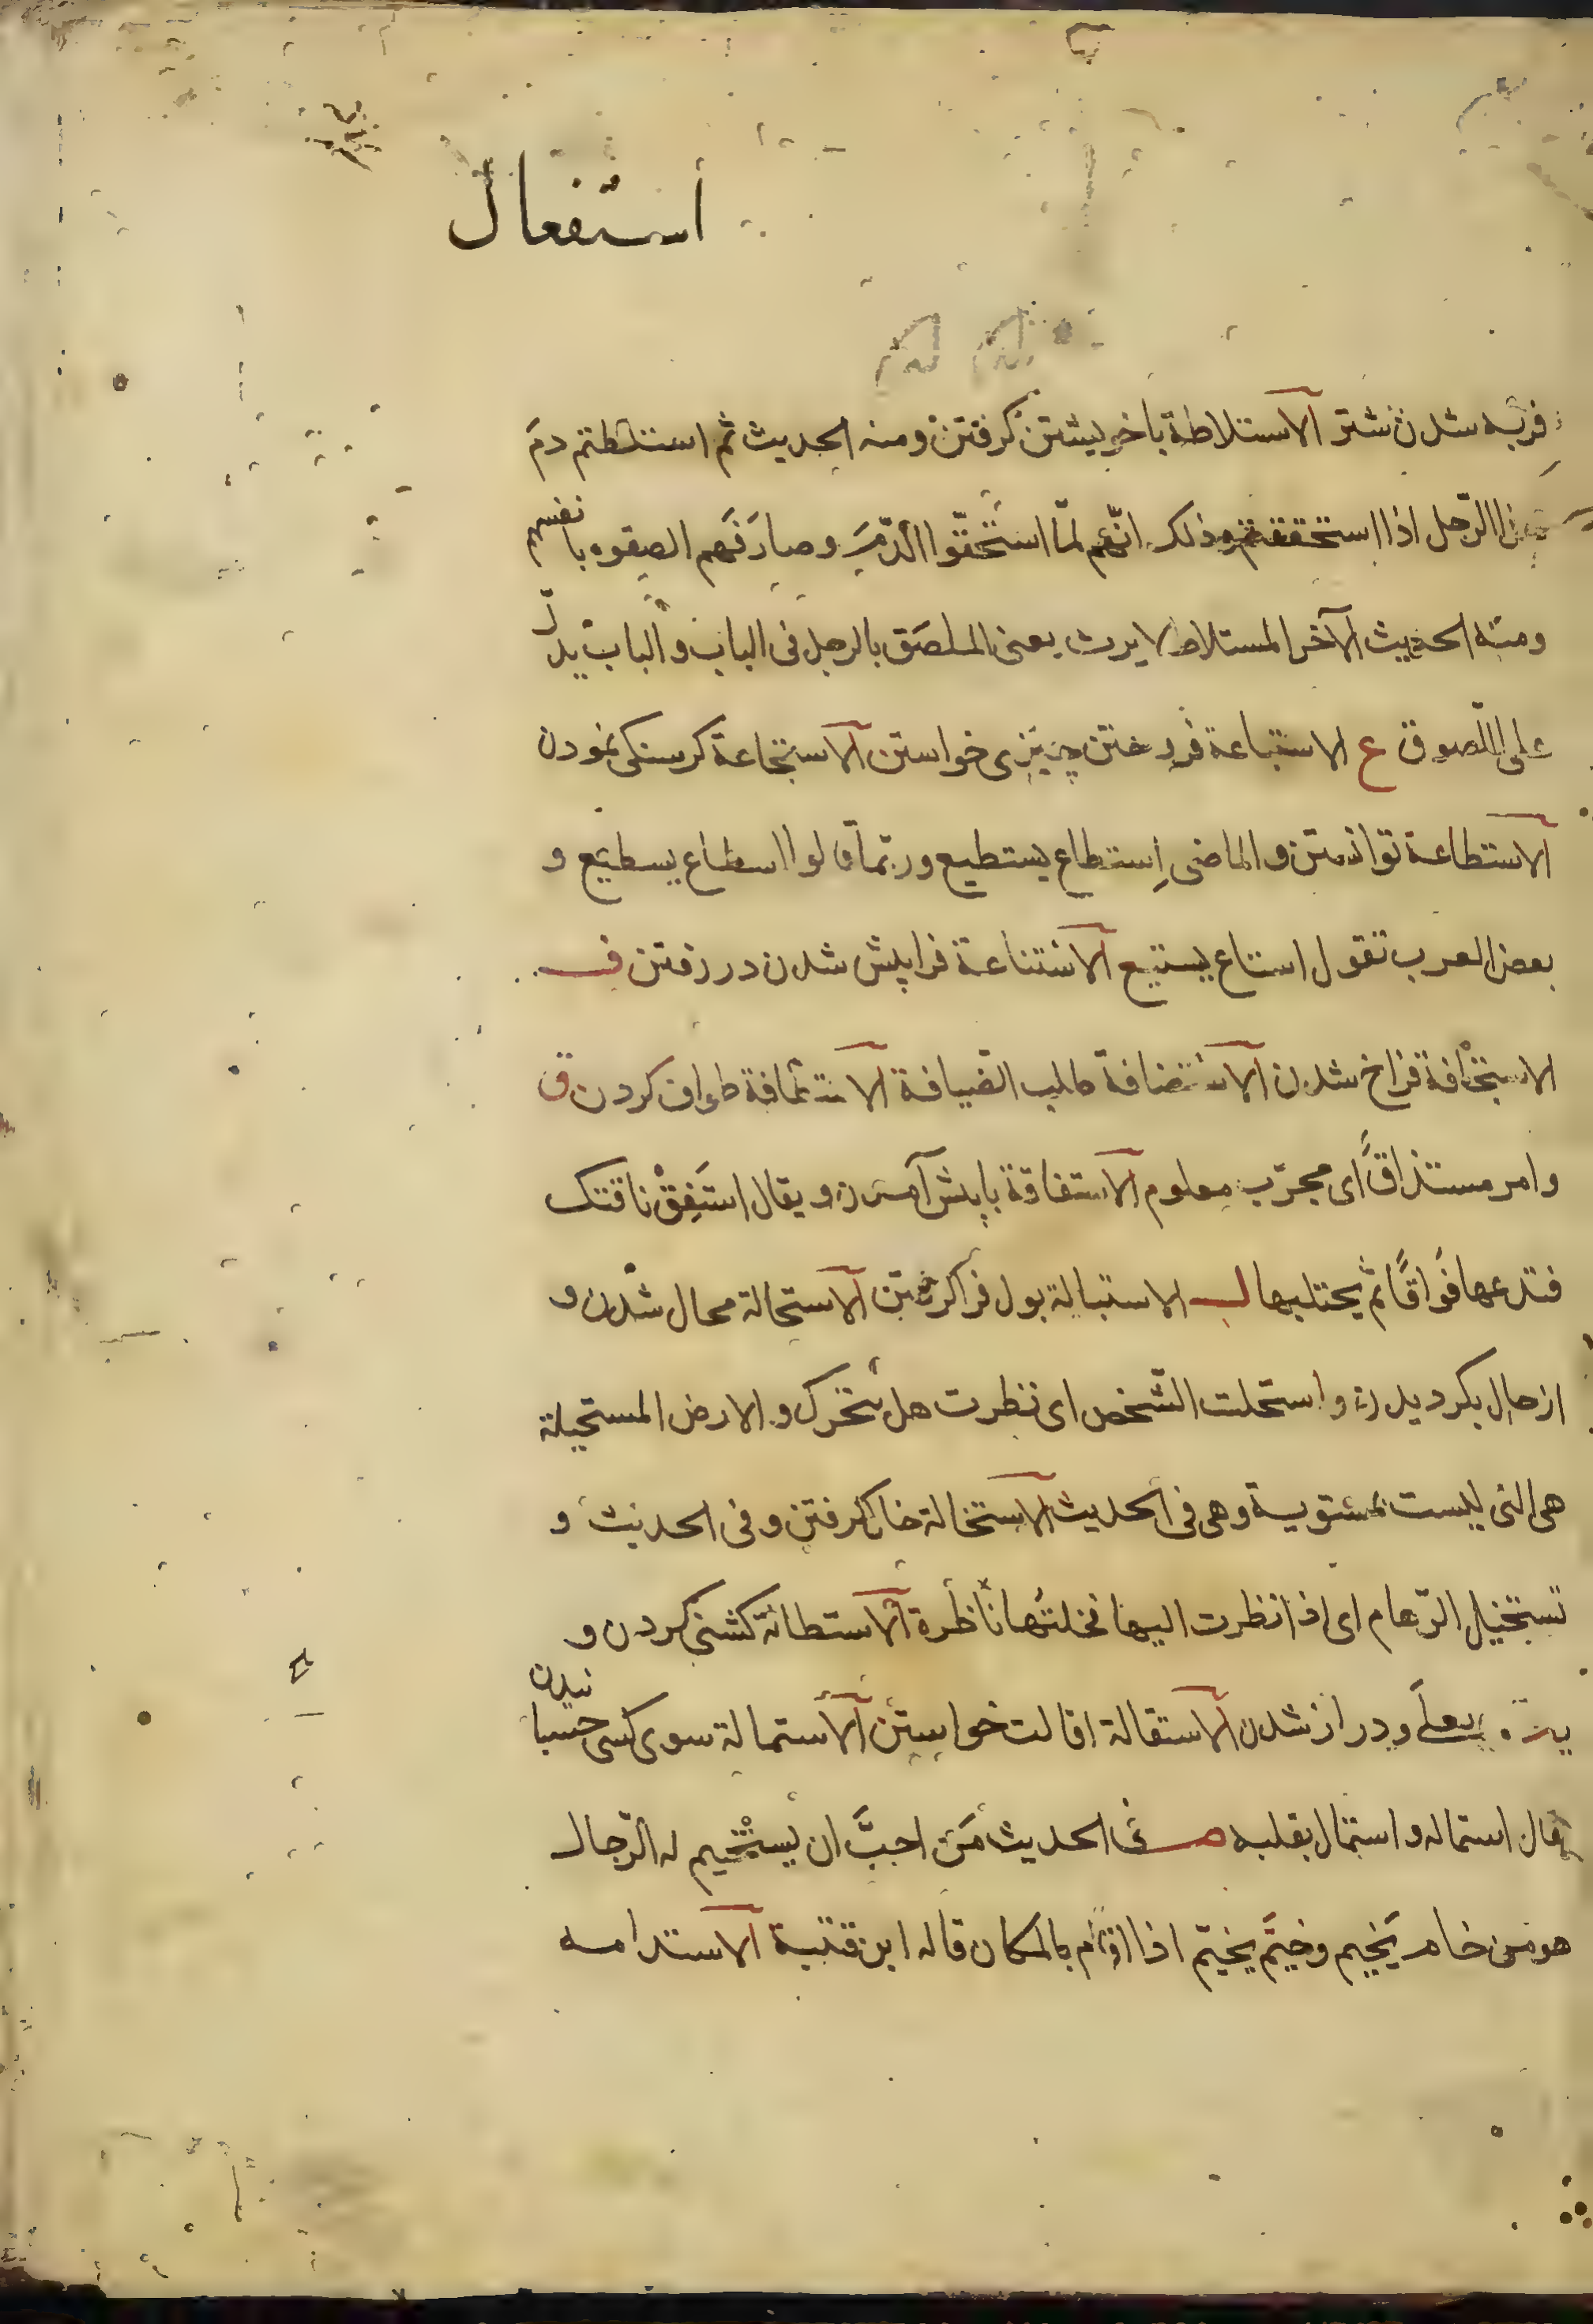 استفعال
فربه شدن شتر الاستلاطة باخویشتن گرفتن ومنه الحدیث ثم استلطتم دم
هذا الرّجل اذا استحققتموه وذلک انّهم لمّا استحقّوا الدّمَ وصار لهم الصقوه بانفسهم
ومنه الحدیث الآخر المستلاط لا یرث یعنی الملصَق بالرجل فی الباب والباب یدلّ
علی اللّصوق ع الاستباعة فروختن چیزی خواستن الاستجاعة کرسنکی نمودن
الاستطاعة توانستن والماضی اِستطاع یستطیع وربّما قالوا اسطاع یسطیع و
بعض العرب تقول استاع یستیع الاستناعة فراپیش شدن در رفتن ف
الاستجافة فراخ شدن الاستضافة طلب الضیافة الاستطافة طواف کردن ق
وامر مستذاقٌ ای مجرّب معلوم الاستفاقة باپیش آمدن ویقال استَفِقْ ناقتک
فتدعها فَواقًا ثم یحتلبها ل الاستبالة بول فراکرفتن الاستحالة محال شدن و
از حال بکردیدن واستحلت الشّخص ای نظرت هل یتحرک والارض المستحیلة
هی التی لیست بمستویة وهی فی الحدیث الاستخالة خال کرفتن وفی الحدیث و
نستخیل الرّهام ای اذا نظرت الیها فخلتها ناظرة الاستطالة کشنی کردن و
یعلّی ودراز شدن الاستقالة اقالت خواستن الاستمالة سوی کسی حسبا نیدن
یقال استماله واستمال بقلبه م فی الحدیث مَن احبَّ ان یستخیم له الرّجال
هو من خام یَخیم وخیَّم یخیّم اذا اقام بالمکان قاله ابن قتیبة الاستدامه